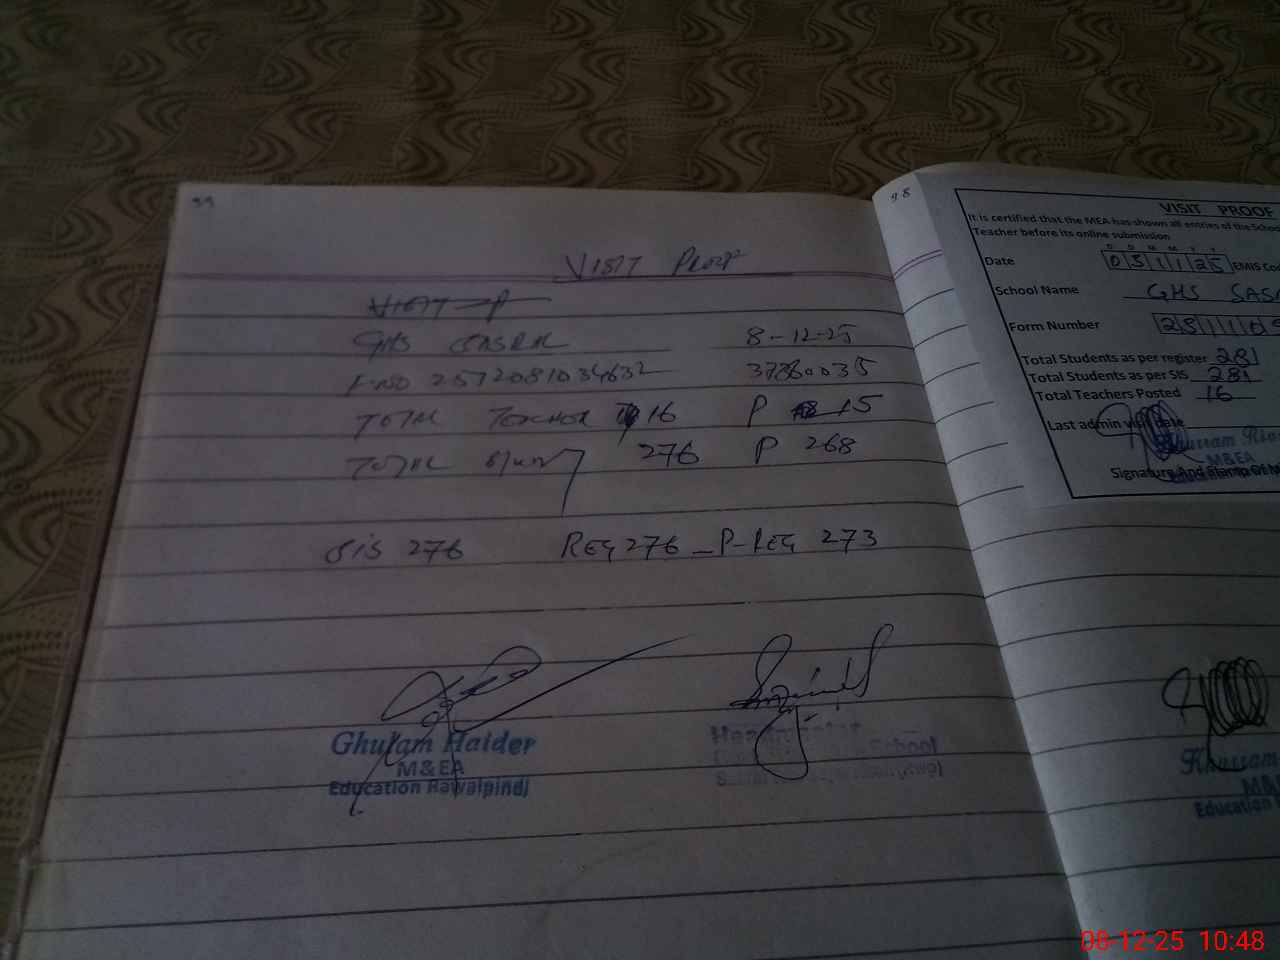 99
VISIT PROOF
VISIT P
GHS 8-12-25
F.NO 2512081034632 37360035
TOTAL TEACHER 16 P 15
TOTAL 276 P 268
SIS 276 REG 276 - P-REG 273
Ghulam Haider
M&EA
Education Rawalpindi
Headmaster
School
98
VISIT PROOF
It is certified that the MEA has shown all entries of the School
Teacher before its online submission
D D M M Y Y
Date 051125 EMIS Cod
School Name GHS SASR
Form Number 25110
Total Students as per register 281
Total Students as per SIS 281
Total Teachers Posted 16
Last admin visit date
Khurram
M&EA
Signature And Stamp Of M
Khurram
M&
Education
08-12-25 10:48